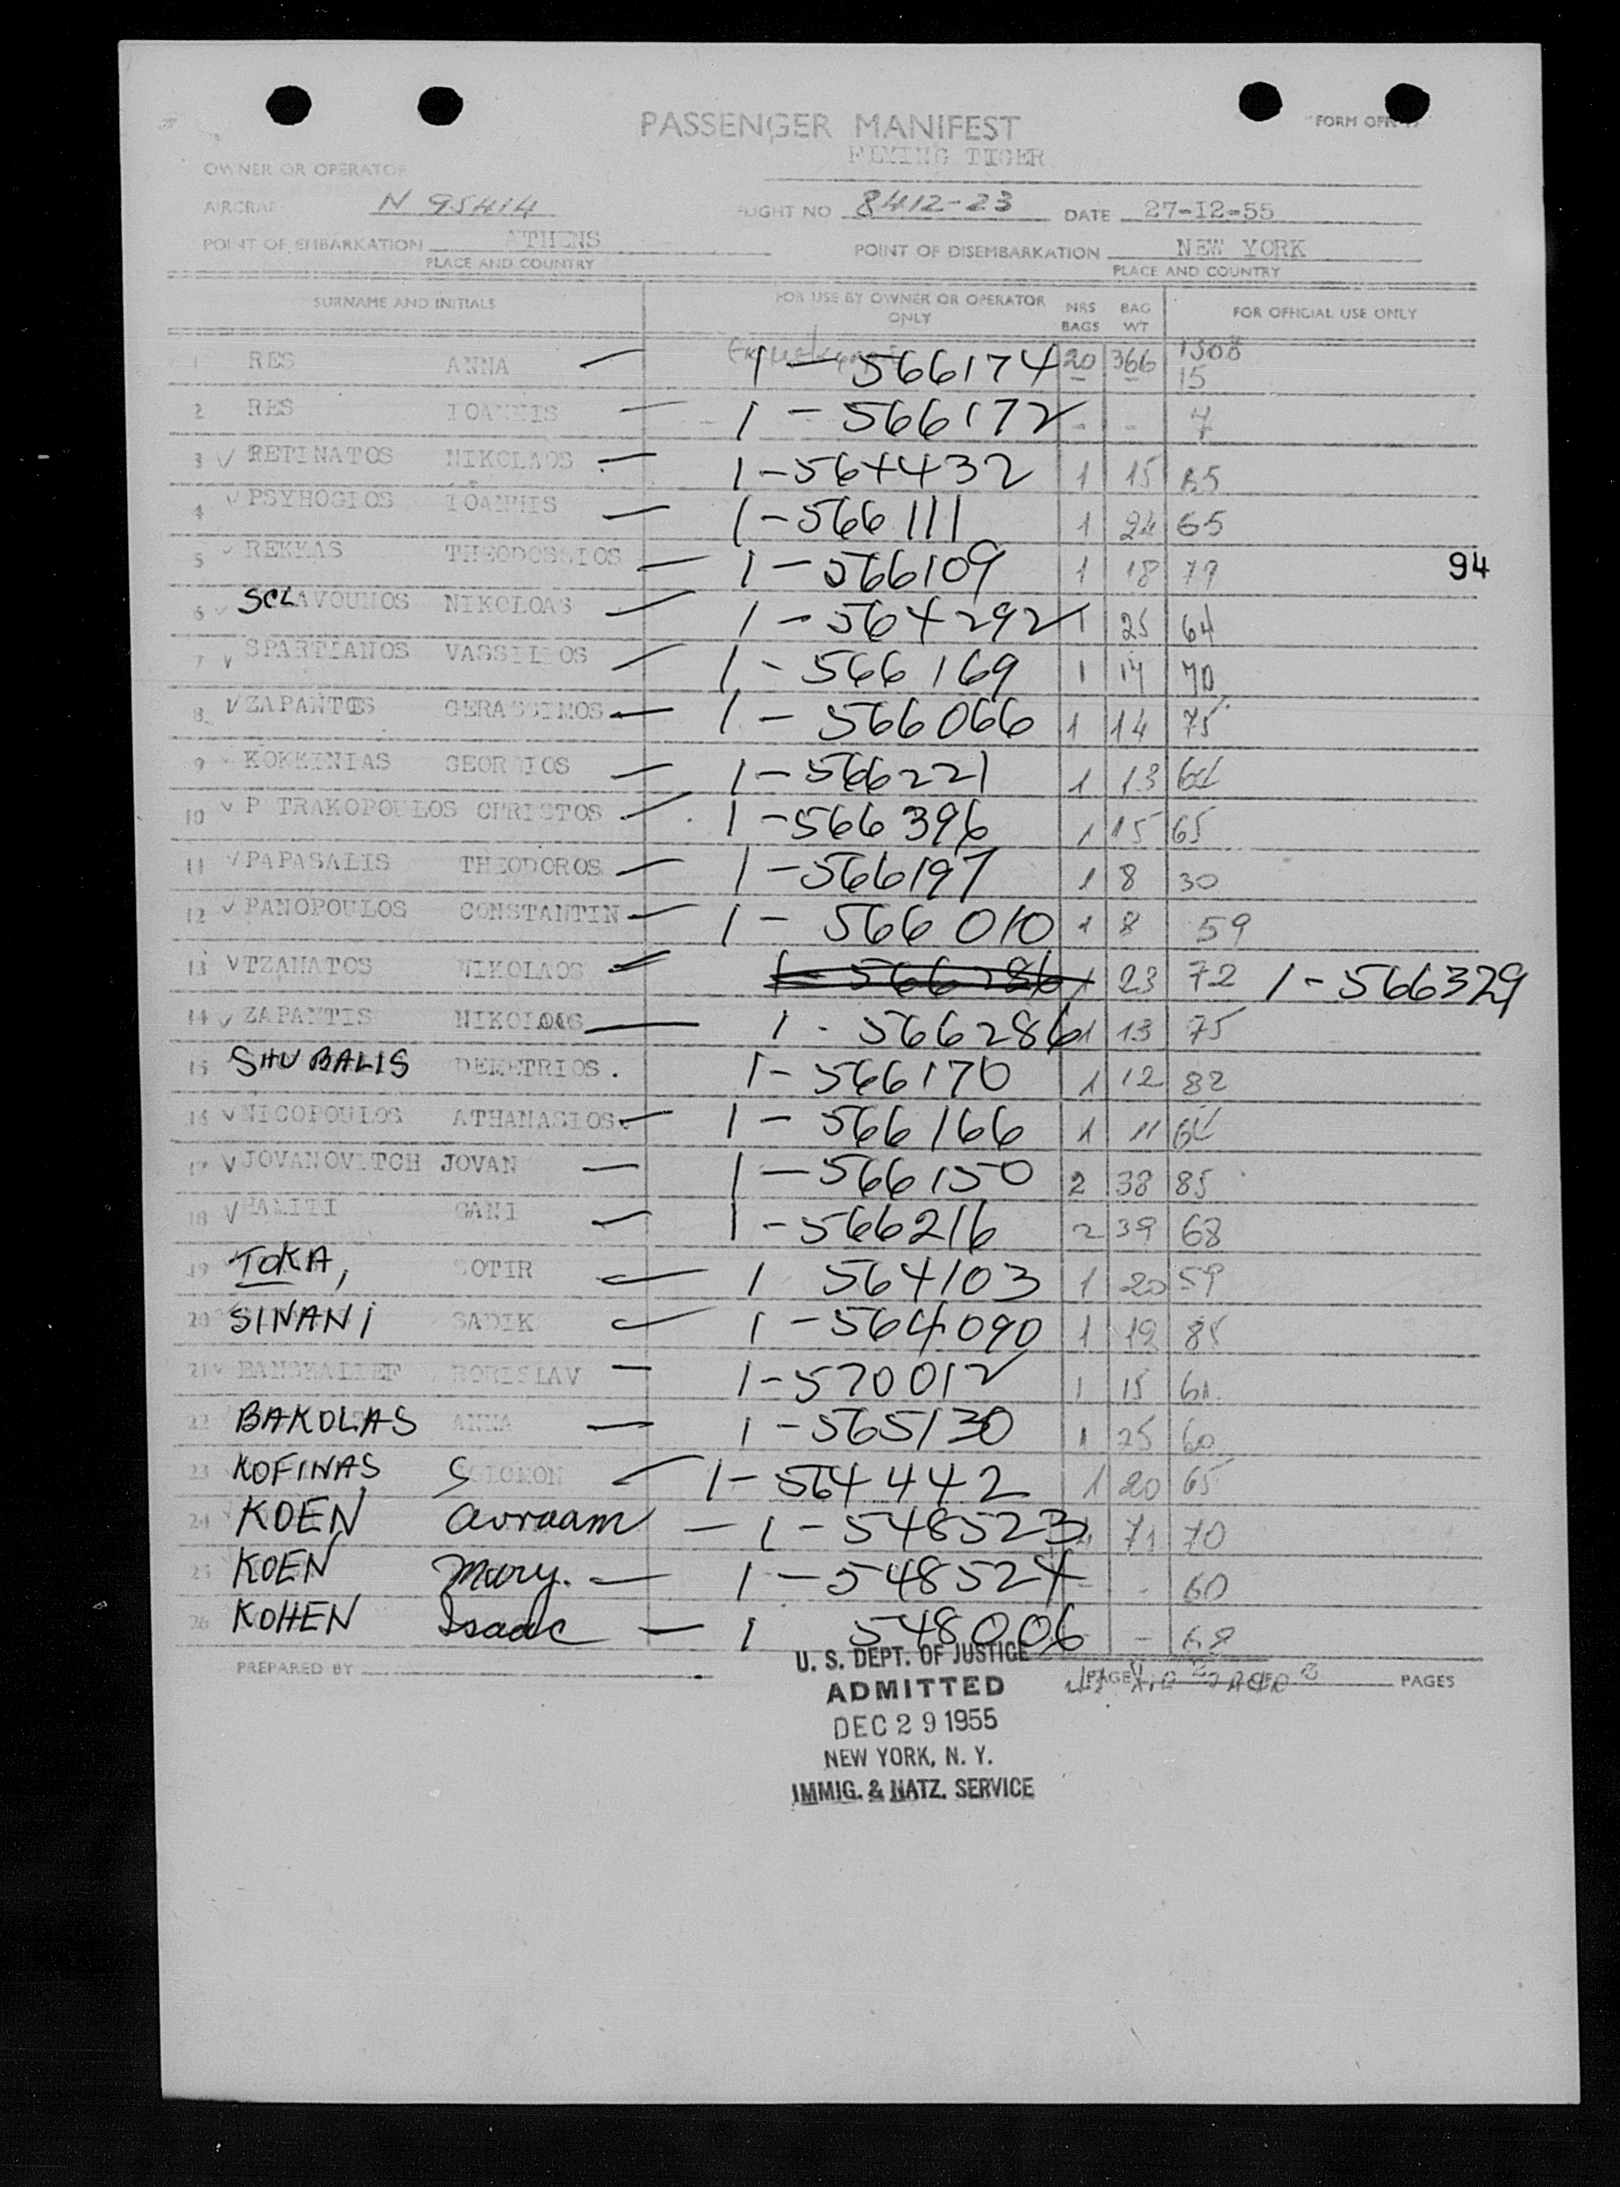 PASSENGER MANIFEST
FORM
FLYING TIGER
OWNER OR OPERATOR
AIRCRAFT N 95414 FLIGHT NO 8412-23 DATE 27-12-55
POINT OF EMBARKATION ATHENS POINT OF DISEMBARKATION NEW YORK
PLACE AND COUNTRY PLACE AND COUNTRY
SURNAME AND INITIALS FOR USE BY OWNER OR OPERATOR ONLY NRS BAGS BAG WT FOR OFFICIAL USE ONLY
1 RES ANNA — 1-566174 20 366 1508 15
2 RES IOANNIS — 1-566172 - - 7
3 √ RETINATOS NIKOLAOS — 1-564432 1 15 85
4 √ PSYHOGIOS IOANNIS — 1-566111 1 24 65
5 √ REKKAS THEODOSSIOS — 1-566109 1 18 79
94
6 √ SCLAVOUNOS NIKOLOAS — 1-564292 1 25 64
7 √ SPARTIANOS VASSILIOS — 1-566169 1 14 70
8 √ ZAPANTOS GERASSIMOS — 1-566066 1 14 75
9 √ KOKKINIAS GEORGIOS — 1-566221 1 13 64
10 √ P TRAKOPOULOS CHRISTOS — 1-566396 1 15 65
11 √ PAPASALIS THEODOROS — 1-566197 1 8 30
12 √ PANOPOULOS CONSTANTIN — 1-566010 1 8 59
13 √ TZANATOS NIKOLAOS — 1-566286 1 23 72 1-566329
14 √ ZAPANTIS NIKOLAOS — 1-566286 1 13 75
15 SHUBALIS DEMETRIOS. 1-566170 1 12 82
16 √ NICOPOULOS ATHANASIOS. — 1-566166 1 11 64
17 √ JOVANOVITCH JOVAN — 1-566150 2 38 85
18 √ HAMITI GANI — 1-566216 2 39 68
19 TOKA, SOTIR — 1 564103 1 20 59
20 SINANI SADIK — 1-564090 1 19 85
21 √ BORISLAV — 1-570012 1 15 61
22 BAKOLAS ANNA — 1-565130 1 25 60
23 KOFINAS SOLOMON — 1-564442 1 20 65
24 KOEN Avraam — 1-548523 4 71 70
25 KOEN Mary. — 1-548524 - - 60
26 KOHEN Isaac — 1 548006 - - 69
PREPARED BY PAGE 2 3 PAGES
U. S. DEPT. OF JUSTICE
ADMITTED
DEC 29 1955
NEW YORK, N. Y.
IMMIG. & NATZ. SERVICE